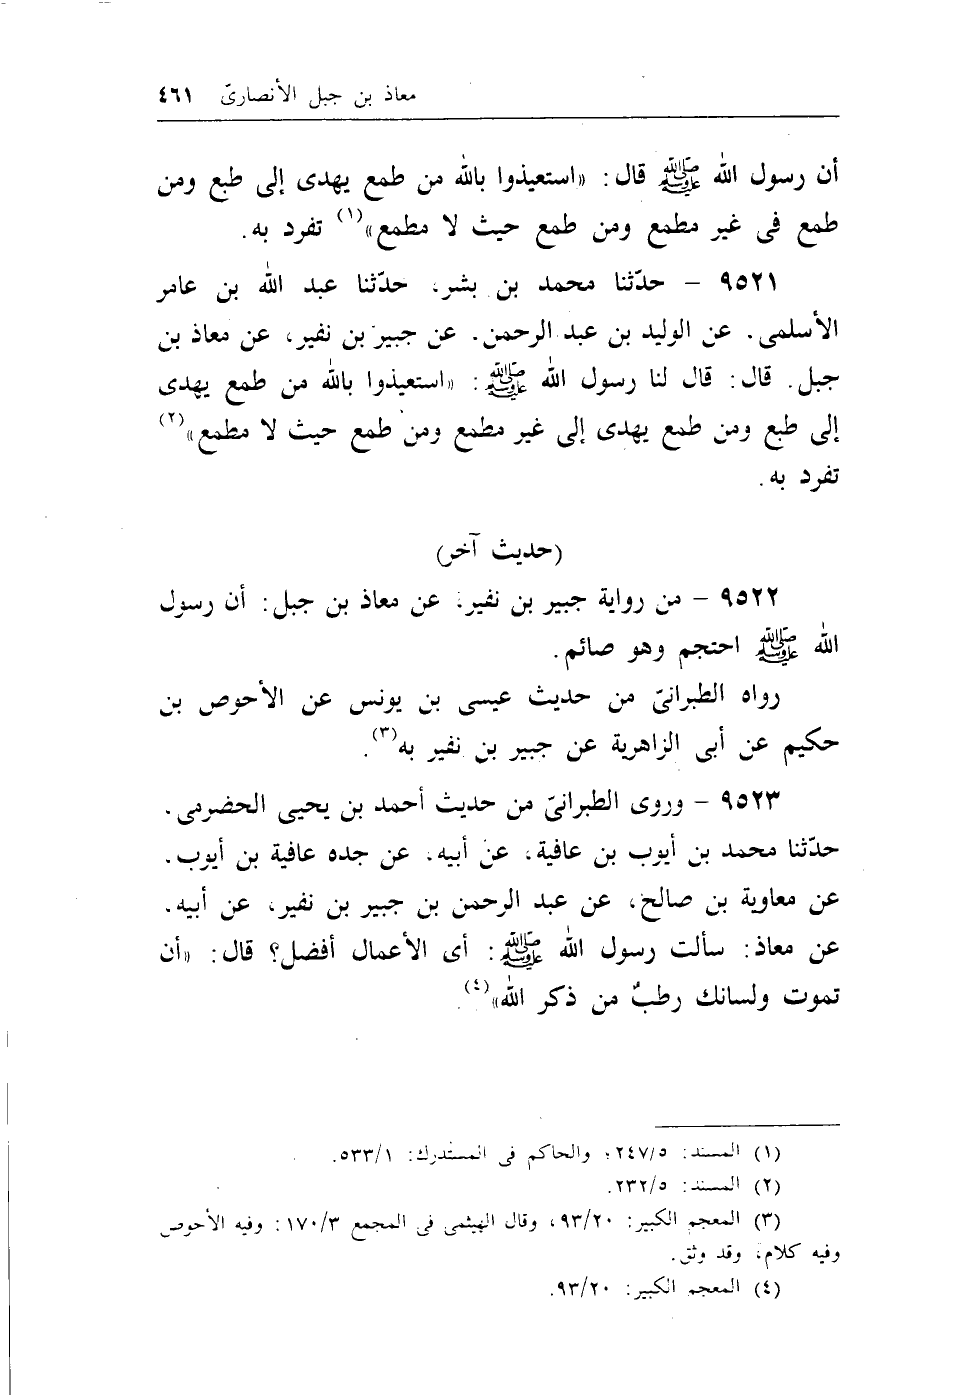 معاذ بن جبل الأنصارىّ ٤٦١
أن رسول الله ﷺ قال: «استعيذوا بالله من طمع يهدى إلى طبع ومن
طمع فى غير مطمع ومن طمع حيث لا مطمع»(١) تفرد به.
٩٥٢١ - حدّثنا محمد بن بشر، حدّثنا عبد الله بن عامر
الأسلمى. عن الوليد بن عبد الرحمن. عن جبير بن نفير، عن معاذ بن
جبل. قال: قال لنا رسول الله ﷺ: «استعيذوا بالله من طمع يهدى
إلى طبع ومن طمع يهدى إلى غير مطمع ومن طمع حيث لا مطمع»(٢)
تفرد به.
(حديث آخر)
٩٥٢٢ - من رواية جبير بن نفير، عن معاذ بن جبل: أن رسول
الله ﷺ احتجم وهو صائم.
رواه الطبرانىّ من حديث عيسى بن يونس عن الأحوص بن
حكيم عن أبى الزاهرية عن جبير بن نفير به(٣).
٩٥٢٣ - وروى الطبرانىّ من حديث أحمد بن يحيى الحضرمى.
حدّثنا محمد بن أيوب بن عافية، عن أبيه، عن جده عافية بن أيوب.
عن معاوية بن صالح، عن عبد الرحمن بن جبير بن نفير، عن أبيه.
عن معاذ: سألت رسول الله ﷺ: أى الأعمال أفضل؟ قال: «أن
تموت ولسانك رطبٌ من ذكر الله»(٤).
(١) المسند: ٢٤٧/٥؛ والحاكم فى المستدرك: ٥٣٣/١.
(٢) المسند: ٢٣٢/٥.
(٣) المعجم الكبير: ٩٣/٢٠، وقال الهيثمى فى المجمع ١٧٠/٣: وفيه الأحوص
وفيه كلام، وقد وثق.
(٤) المعجم الكبير: ٩٣/٢٠.